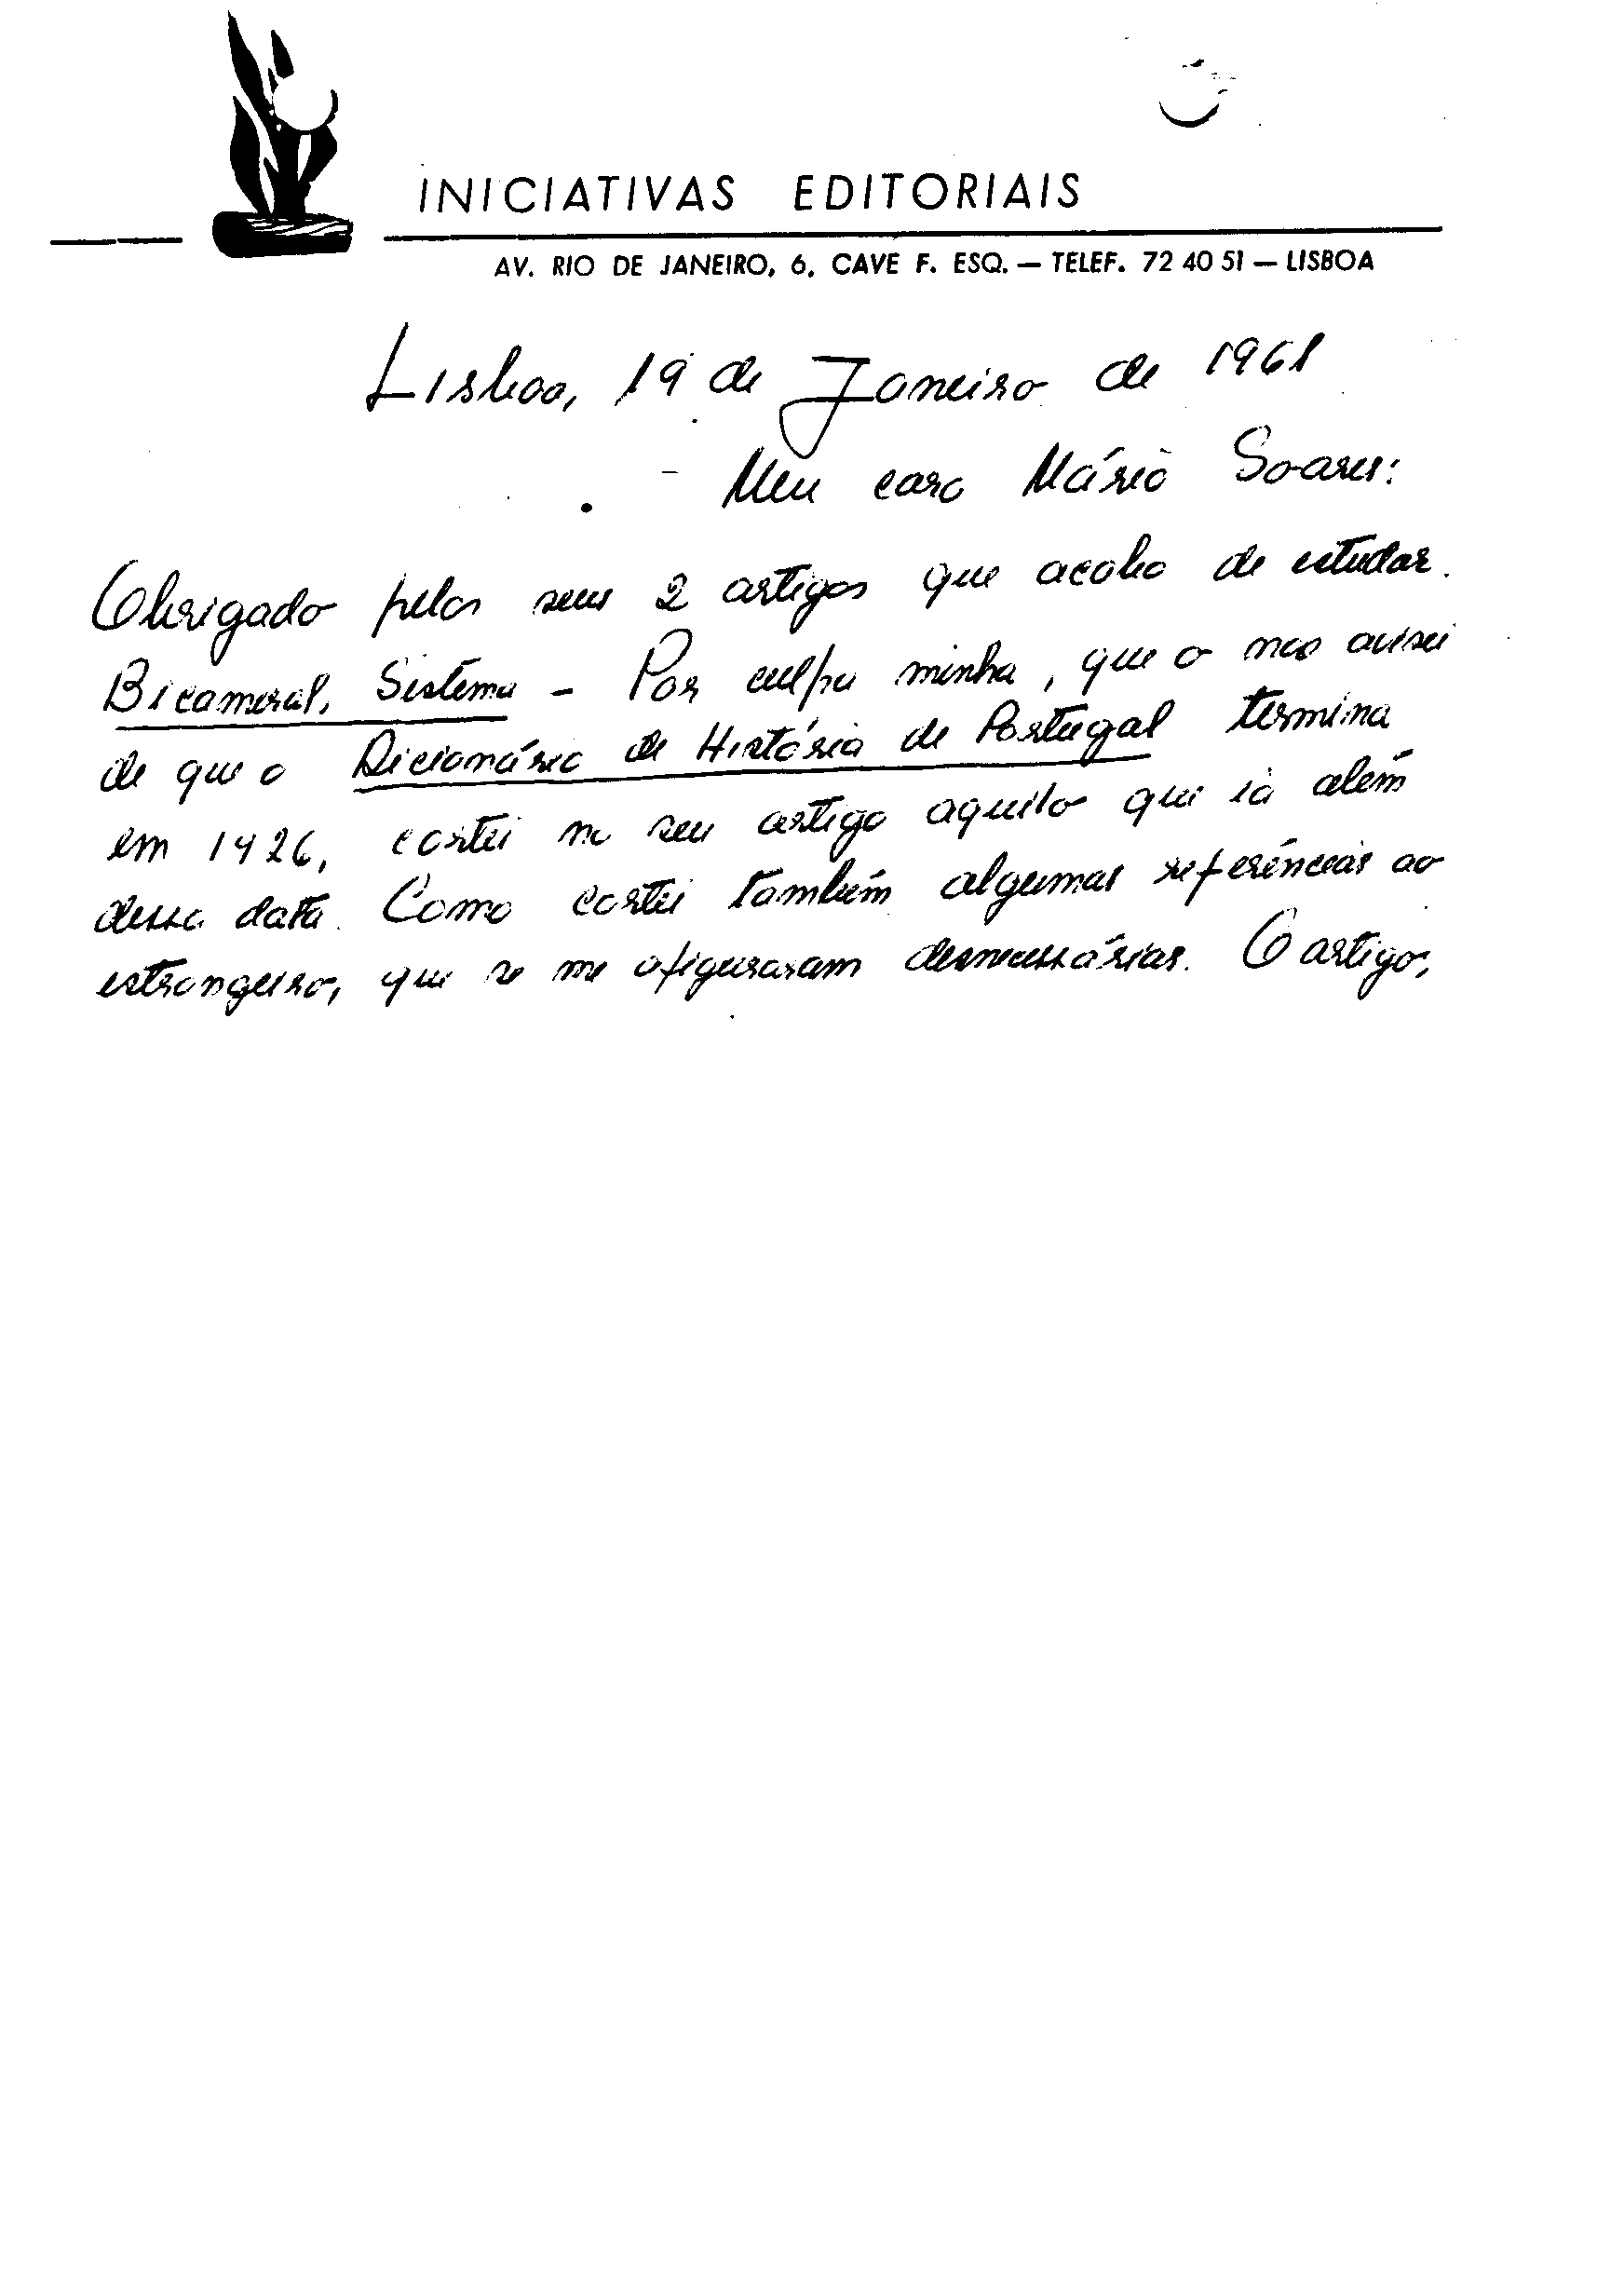 INICIATIVAS EDITORIAIS
AV. RIO DE JANEIRO, 6, CAVE F. ESQ. — TELEF. 72 40 51 — LISBOA
Lisboa, 19 de Janeiro de 1961
Meu caro Mário Soares:
Obrigado pelos seus 2 artigos que acabo de estudar.
Bicameral, Sistema - Por culpa minha, que o não avisei
de que o Dicionário de História de Portugal termina
em 1926, cortei no seu artigo aquilo que ia além
dessa data. Como cortei também algumas referências ao
estrangeiro, que se me afiguraram desnecessárias. O artigo,